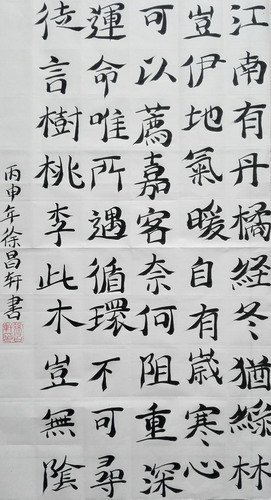 江南有丹橘経冬猶綠林
豈伊地氣暖自有歲寒心
可以薦嘉客奈何阻重深
運命唯所遇循環不可尋
徒言樹桃李此木豈無陰
丙申年徐昌軒書